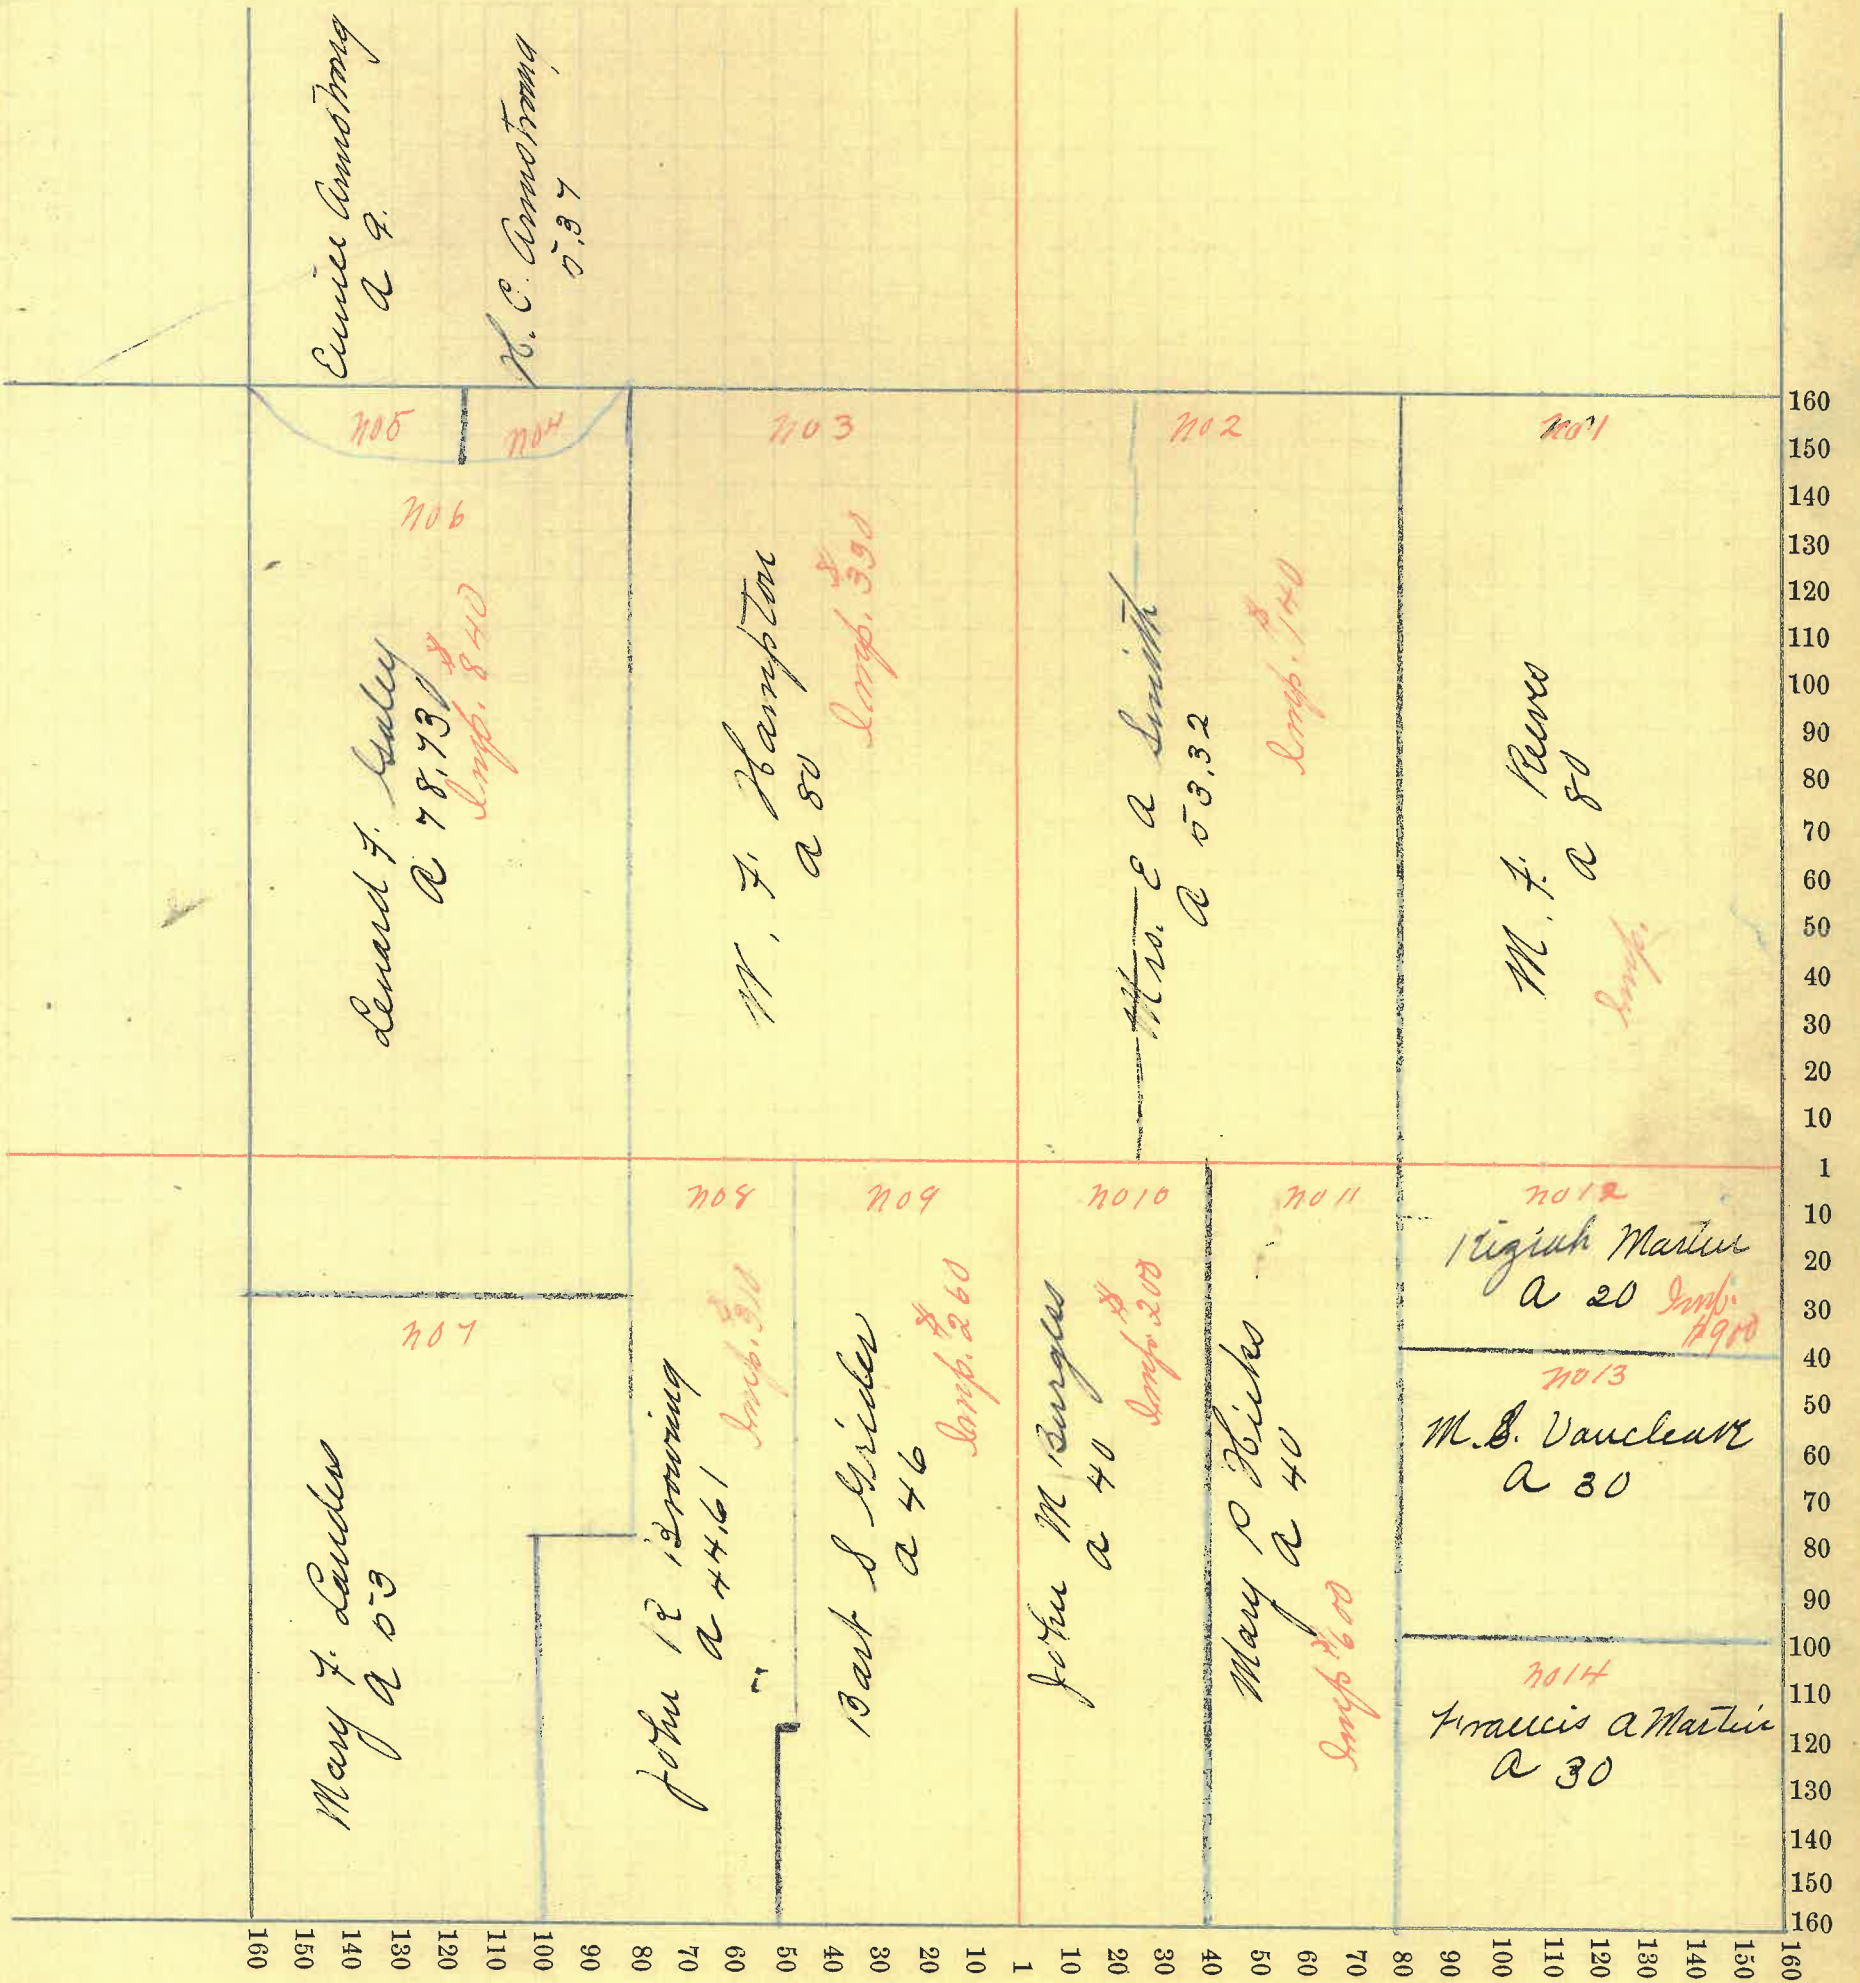 Eunice Armstrong
A 9.
H. C. Armstrong
5.37
No 5
No 4
No 3
No 2
No 1
No 6
Lenard F. Galey
A 78.73
Imp. $840
W. F. Hampton
A 80
Imp. $390
Mrs. E A Smith
A 53.32
Imp. $140
M. F. Reeves
A 80
Imp.
No 7
Mary F. Landers
A 53
No 8
John B Browning
A 44.61
Imp. $310
No 9
Bart S Grider
A 46
Imp. $260
No 10
John M Burgess
A 40
Imp $200
No 11
Mary P Hicks
A 40
Imp $600
No 12
Kiziah Martin
A 20
Imp. $900
No 13
M. S. Vancleave
A 30
No 14
Francis A Martin
A 30
160
150
140
130
120
110
100
90
80
70
60
50
40
30
20
10
1
10
20
30
40
50
60
70
80
90
100
110
120
130
140
150
160
160
150
140
130
120
110
100
90
80
70
60
50
40
30
20
10
1
10
20
30
40
50
60
70
80
90
100
110
120
130
140
150
160